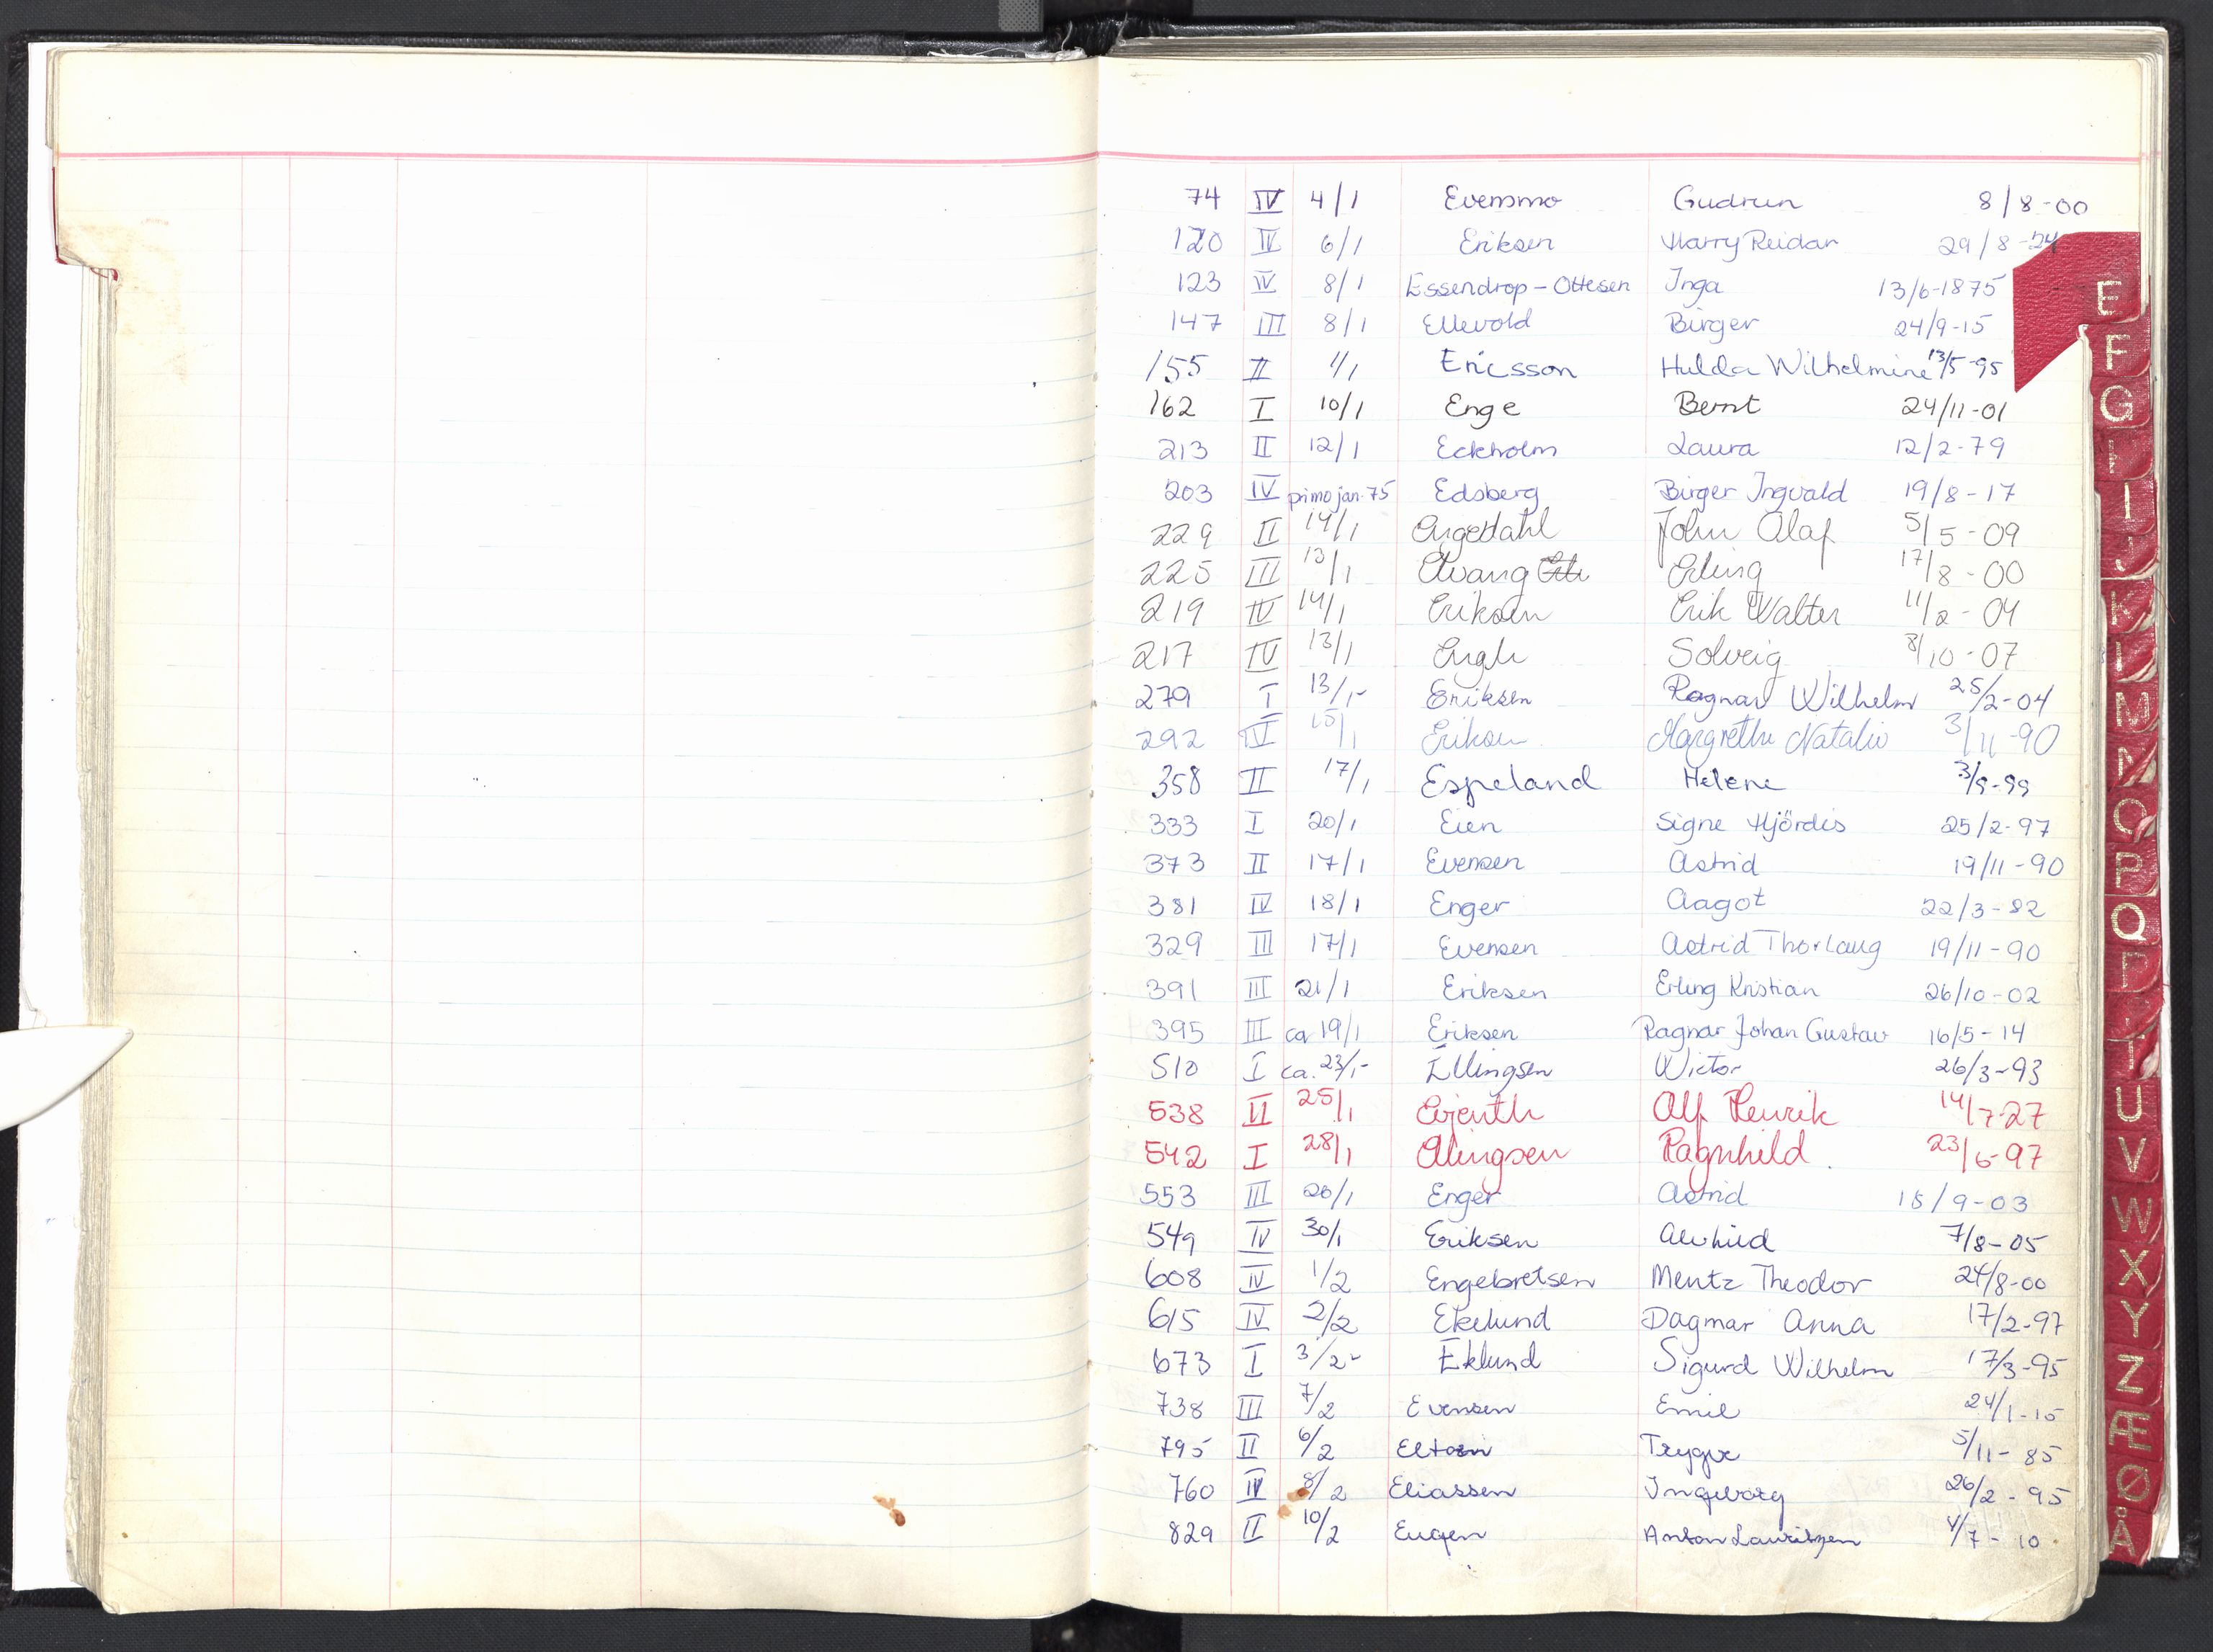 74 IV 4/1 Evensmo Gudrun 8/8-00
120 IV 6/1 Eriksen Harry Reidar 29/8-24
123 IV 8/1 Essendrop-Ottesen Inga 13/6-1875
147 III 8/1 Ellevold Birger 24/9-15
155 II 1/1 Ericsson Hulda Wilhelmine 13/5-95
162 I 10/1 Enge Bernt 24/11-01
213 II 12/1 Eckholm Laura 12/2-79
203 IV primo jan. 75 Edsberg Birger Ingvald 19/8-17
229 II 14/1 Engedahl John Olaf 5/5-09
225 III 13/1 Elvang Erling 17/8-00
219 IV 14/1 Eriksen Erik Walter 11/2-04
217 IV 13/1 Engh Solveig 8/10-07
279 I 13/1- Eriksen Ragnar Wilhelm 25/2-04
292 IV 15/1 Eriksen Margrethe Natalie 3/11-90
358 II 17/1 Espeland Helene 3/9-99
333 I 20/1 Eien Signe Hjördis 25/2-97
373 II 17/1 Evensen Astrid 19/11-90
381 IV 18/1 Enger Aagot 22/3-82
329 III 17/1 Evensen Astrid Thorlaug 19/11-90
391 III 21/1 Eriksen Erling Kristian 26/10-02
395 III ca 19/1 Eriksen Ragnar Johan Gustav 16/5-14
510 I ca. 23/1- Ellingsen Wictor 26/3-93
538 II 25/1 Evjenth Alf Henrik 14/7-27
542 I 28/1 Ellingsen Ragnhild 23/6-97
553 III 20/1 Enger Astrid 18/9-03
549 IV 30/1 Eriksen 7/8-05
608 IV 1/2 Engebretsen Mentz Theodor 24/8-00
615 IV 2/2 Ekelund Dagmar Anna 17/2-97
673 I 3/2- Eklund Sigurd Wilhelm 17/3-95
738 III 7/2 Evensen Emil 24/1-15
795 II 6/2 Trygve 5/11-85
760 IV 8/2 Eliassen Ingeborg 26/2-95
829 II 10/2 Eugen Anton Lauritzen 4/7-10
E
F
G
H
I
J
K
L
M
N
O
P
Q
R
T
U
V
W
X
Y
Z
Æ
Ø
Å